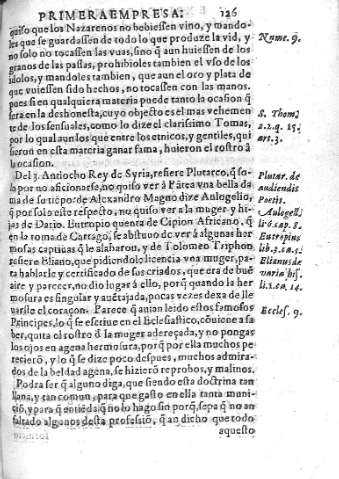 PRIMERA EMPRESA:
126
quiso que los Nazarenos no bebiessen vino, y mando-
les que se guardassen de todo lo que produze la vid, y
no solo no tocassen las vuas, sino q̃ aun huiessen de los
granos de las passas, prohibioles tambien el vso de los
idolos, y mandoles tambien, que aun el oro y plata de
que vuiessen sido hechos, no tocassen con las manos.
pues si en qualquiera materia puede tanto la ocasion q̃
sera en la deshonesta, cuyo objecto es el mas vehemen
te de los sensuales, como lo dize el clarissimo Tomas,
por lo qual aun los que entre los etnicos, y gentiles, qui
sieron en esta materia ganar fama, huieron el rostro â
la ocasion.
Del 3. Antiocho Rey de Syria, refiere Plutarco, q̃ so-
lo por no aficionarse, no quiso ver â vna bella da
ma de su tiẽpo: de Alexandro Magno dize Aulogelio,
q̃ por solo este respecto, no quiso ver a la muger y hi-
jas de Dario. Eutropio quenta de Cipion Africano, q̃
en la toma de Cartago, se abstuuo de ver â algunas her
mosas captiuas q̃ le alabaron, y de Tolomeo Triphon
refiere Eliano, que pidiendole licencia vna muger, pa-
ra hablarle y certificado de sus criados, que era de bue
aire y parecer, no dio lugar â ello, porq̃ quando la her
mosura es singular y auẽtajada, pocas vezes dexa de lle
uarse el coraçon. Parece q̃ auian leido estos famosos
Principes, lo q̃ se escriue en el Eclesiastico, cõuiene a sa-
ber, quita el rostro â la muger adereçada, y no pongas
los ojos en agena hermosura, porq̃ por ella muchos pe
recierõ, y lo q̃ se dize poco despues, muchos admira-
dos de la beldad agena, se hizierõ reprobos, y malinos.
Podra ser q̃ alguno diga, que siendo esta doctrina tan
llana, y tan comun, para que gasto en ella tanta muni-
ciõ, y para q̃ entiẽda q̃ no lo hago sin porq̃, sepa q̃ no an
faltado algunos desta professiõ, q̃ an dicho que todo
aquesto
Nume. 9.
S. Thom.
2. 2. q. 15.
art. 3.
Plutar. de
audiendis
Poetis.
Aulogell.
lib. 6. cap. 8.
Eutropius
lib. 3. ca. 5.
Elianus de
varia his.
li. 1. ca. 14.
Eccles. 9.